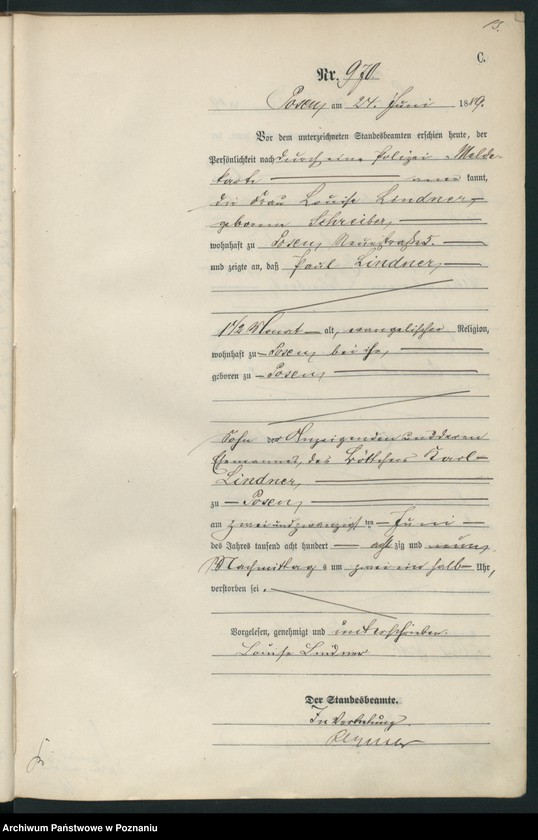 13.
C.
Nr. 970.
Posen, am 24. Juni 1889.
Vor dem unterzeichneten Standesbeamten erschien heute, der
Persönlichkeit nach durch eine Polizei-Melde-
karte kannt,
die Frau Louise Lindner,
geborene Schreiber,
wohnhaft zu Posen, Neuestraße 5.
und zeigte an, daß Paul Lindner,
1 1/2 Monat alt, evangelischer Religion,
wohnhaft zu Posen, bei ihr,
geboren zu Posen,
Sohn der Anzeigenden und deren
Ehemannes, des Böttchers Karl
Lindner,
zu Posen,
am zwei und zwanzigsten Juni
des Jahres tausend acht hundert achtzig und neun,
Nachmittags um zwei ein halb Uhr,
verstorben sei.
Vorgelesen, genehmigt und unterschrieben.
Louise Lindner
Der Standesbeamte.
In Vertretung
Archiwum Państwowe w Poznaniu